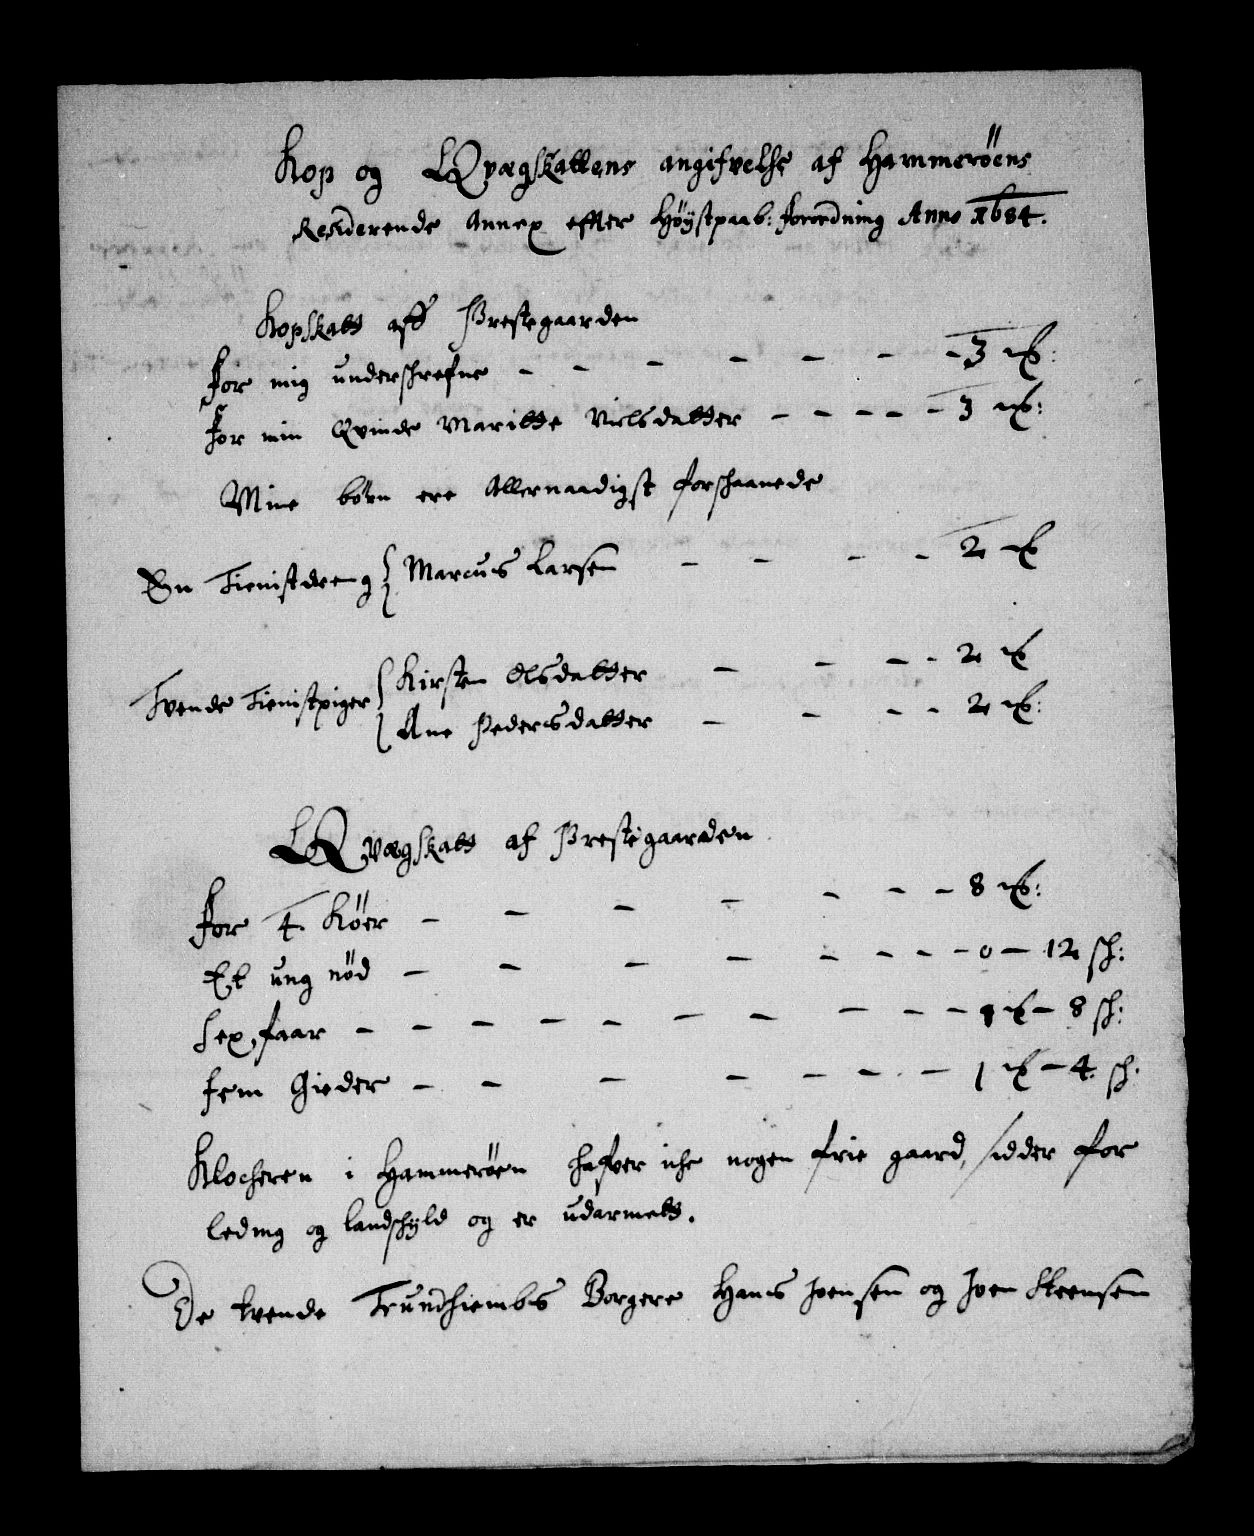 Kop og Qvægskattens angifvelse af Hammerøens
Residerende Annex effter Høÿstpaab: forordning Anno 1684.
Kopskatt aff Prestegaarden
For mig underschrefne - - - - - - - 3 mk:
For min Qvinde Maritte Nielsdatter - - - - - 3 mk:
Mine børn ere Allernaadigst forschaanede
En Tienistdreng { Marcus Larsen - - - - 2 mk
Tvende Tienistpiger { Kirsten Olsdatter - - - - 2 mk
{ Ane Pedersdatter - - - - 2 mk:
Qvægskatt af Prestegaarden
For 4. Køer - - - - - - - 8 mk:
Et ung nød - - - - - - - - - 0 - 12 sch:
Sex faar - - - - - - - - - - - 1 mk - 8 sch:
Fem Gieder - - - - - - - 1 mk - 4. sch:
Klocheren i Hammerøen hafver iche nogen frie gaard, sidder for
leding og landschÿld og er udarmett.
De tvende Trundhiembs Borgere Hans Joensen og Joen Steensen